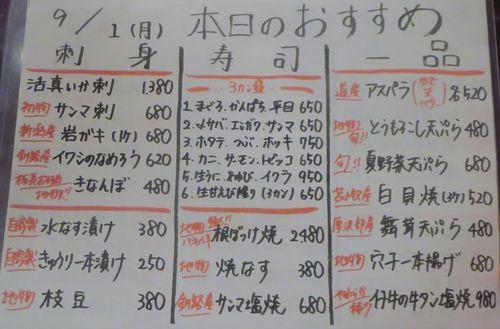 9/1(月) 本日のおすすめ
刺身
活真いか刺 1380
初物 サンマ刺 680
新潟産 岩ガキ(1ヶ) 680
釧路産 イワシのなめろう 620
きなんぼ 480
自家製 水なす漬け 380
自家製 きゅうり一本漬け 250
地物 枝豆 380
寿司
3カン盛
1. まぐろ、かんぱち、平目 650
2. 〆サバ、エンガワ、サンマ 650
3. ホタテ、つぶ、ホッキ 750
4. カニ、サーモン、トビッコ 650
5. 生うに、あわび、イクラ 950
6. 生甘えび握り(3カン) 650
地物 根ぼっけ焼 2480
地物 焼なす 380
釧路産 サンマ塩焼 680
一品
道産 アスパラ(ゆで 天 バター) 各520
地物で旬!! とうもろこし天ぷら 480
旬!! 夏野菜天ぷら 680
苫小牧産 白貝焼(1ヶ) 520
厚沢部産 舞茸天ぷら 480
地物 穴子一本揚げ 680
やわらか 仔牛の牛タン塩焼 980